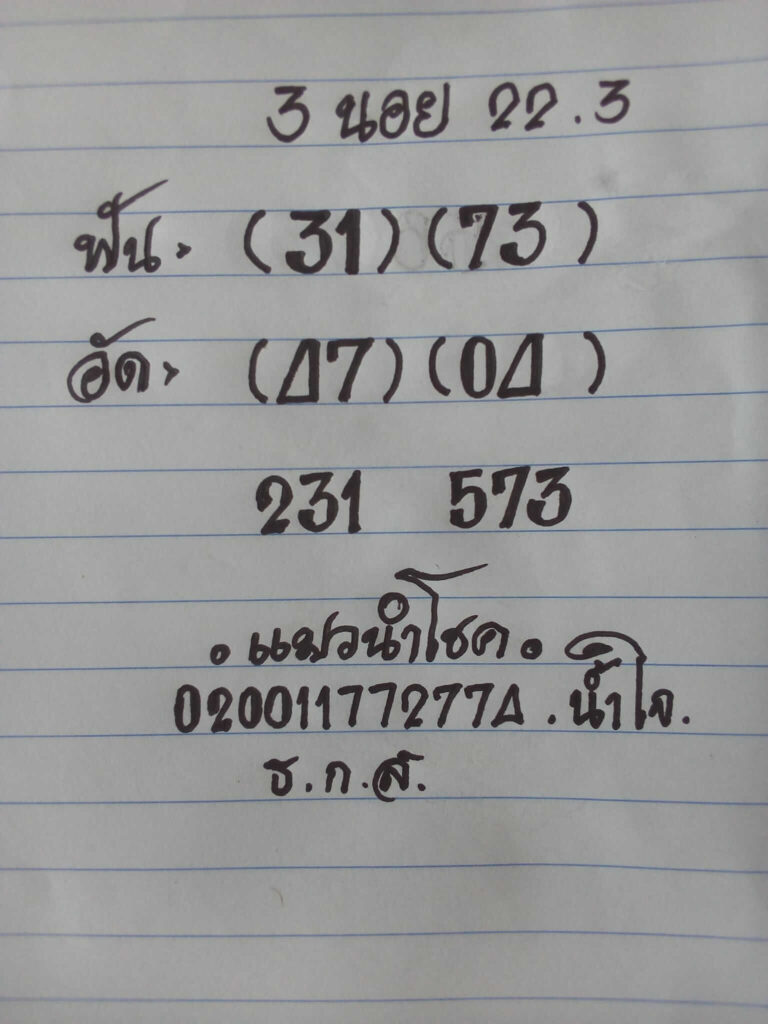 3 นอย 22.3
ฟัน. (31) (73)
อัด. (47) (04)
231 573
. แมวนำโชค .
020011772774 . น้ำใจ.
ธ.ก.ส.